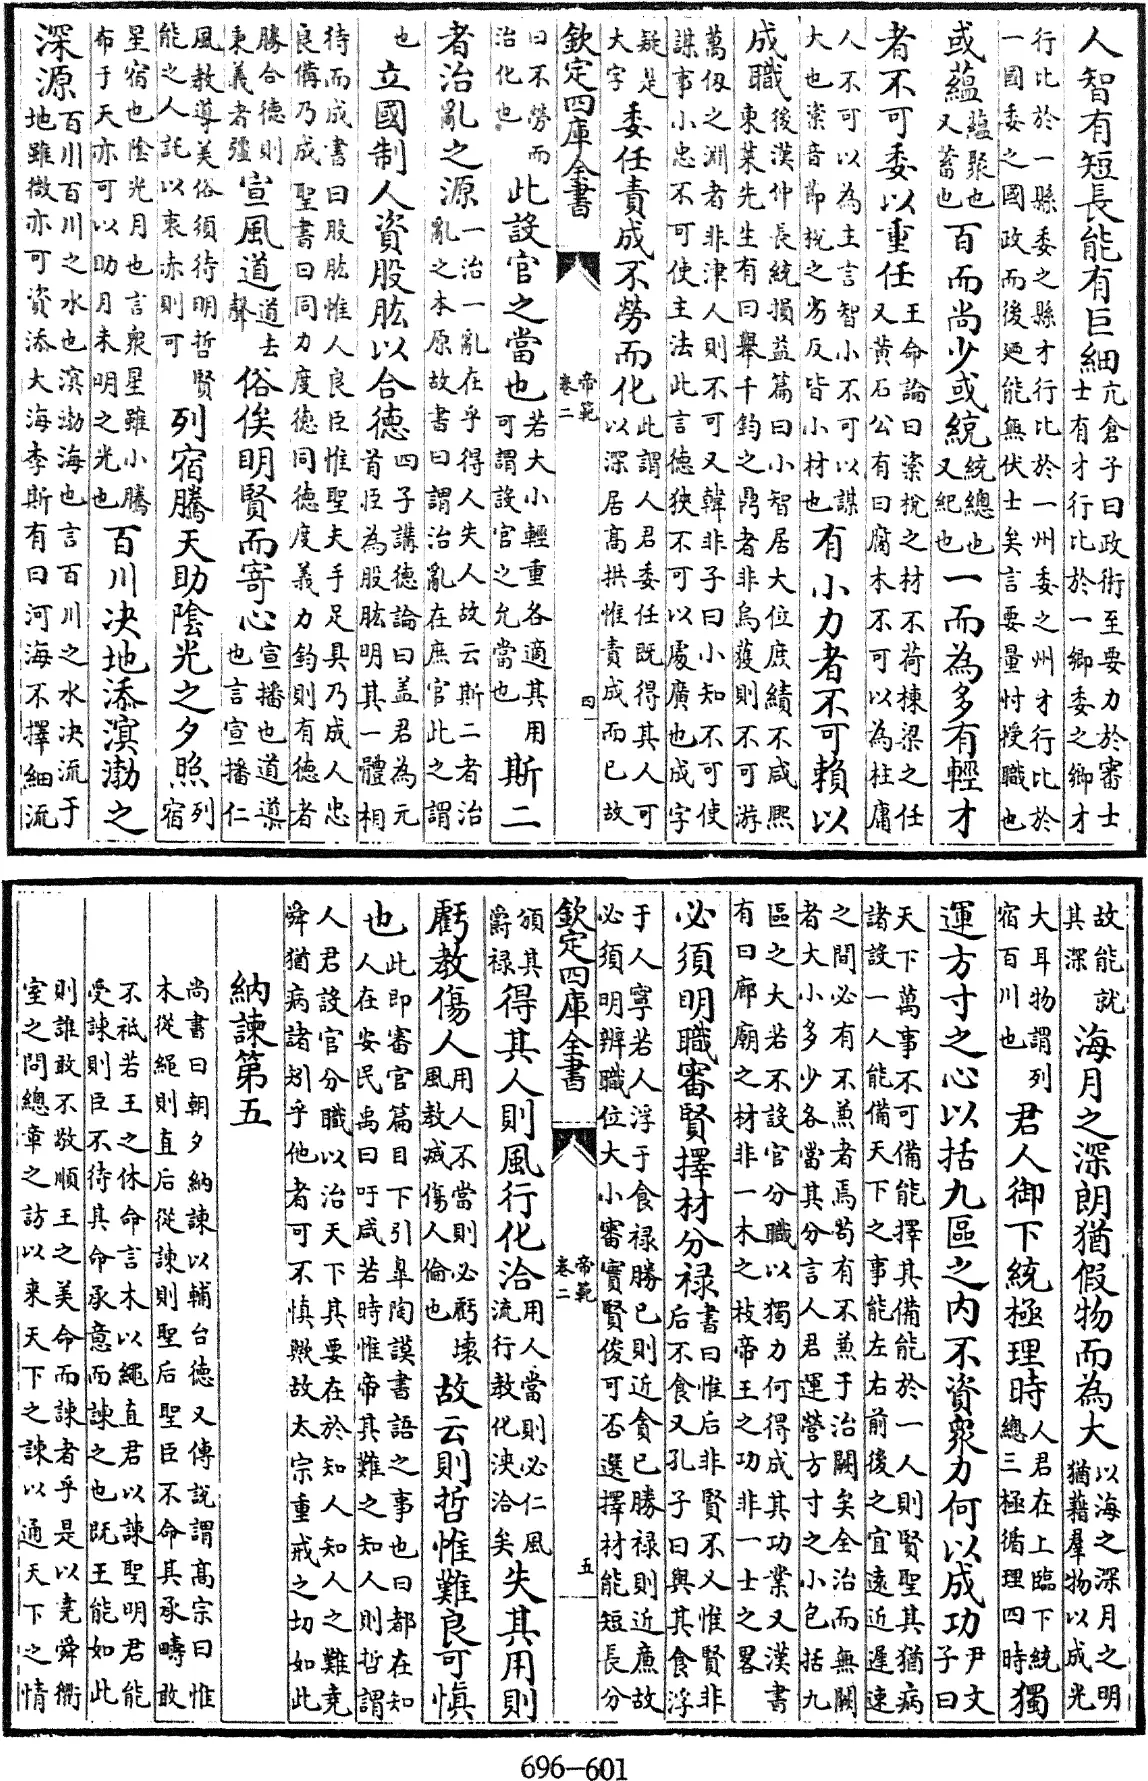 人智有短長能有巨細亢倉子曰政術至要力於審士士有才行比於一鄉委之鄉才
行比於一縣委之縣才行比於一州委之州才行比於一國委之國政而後廼能無伏士矣言要量忖授職也
或蘊蘊聚也又蓄也百而尚少或統統總也又紀也一而為多有輕才
者不可委以重任王命論曰楶梲之材不荷棟梁之任又黃石公有曰腐木不可以為柱庸
人不可以為主言智小不可以謀大也楶音節梲之劣反皆小材也有小力者不可賴以
成職後漢仲長統損益篇曰小智居大位庶績不咸熙東萊先生有曰舉千鈞之鼎者非烏獲則不可游
萬仭之淵者非津人則不可又韓非子曰小知不可使謀事小忠不可使主法此言德狹不可以處廣也成字
疑是大字委任責成不勞而化此謂人君委任既得其人可以深居高拱惟責成而已故
欽定四庫全書 帝範 卷二 四
曰不勞而治化也此設官之當也若大小輕重各適其用可謂設官之允當也斯二
者治亂之源一治一亂在乎得人失人故云斯二者治亂之本原故書曰謂治亂在庶官此之謂
也立國制人資股肱以合德四子講德論曰盖君為元首臣為股肱明其一體相
待而成書曰股肱惟人良臣惟聖夫手足具乃成人忠良備乃成聖書曰同力度德同德度義力鈞則有德者
勝合德則秉義者彊宣風道道去聲俗俟明賢而寄心宣播也道導也言宣播仁
風教導美俗須待明哲賢能之人託以衷赤則可列宿騰天助陰光之夕照列宿
星宿也陰光月也言衆星雖小騰布于天亦可以助月未明之光也百川决地添溟渤之
深源百川百川之水也溟渤海也言百川之水决流于地雖微亦可資添大海李斯有曰河海不擇細流
故能就其深海月之深朗猶假物而為大以海之深月之明猶藉羣物以成光
大耳物謂列宿百川也君人御下統極理時人君在上臨下統總三極循理四時獨
運方寸之心以括九區之內不資衆力何以成功尹文子曰
天下萬事不可備能擇其備能於一人則賢聖其猶病諸設一人能備天下之事能左右前後之宜遠近遲速
之間必有不兼者焉苟有不兼于治闕矣全治而無闕者大小多少各當其分言人君運營方寸之小包括九
區之大若不設官分職以獨力何得成其功業又漢書有曰廊廟之材非一木之枝帝王之功非一士之畧
必須明職審賢擇材分祿書曰惟后非賢不乂惟賢非后不食又孔子曰與其食浮
于人寧若人浮于食祿勝已則近貪已勝祿則近亷故必須明辨職位大小審實賢俊可否選擇材能短長分
欽定四庫全書 帝範 卷二 五
頒其爵祿得其人則風行化洽用人當則必仁風流行教化浹洽矣失其用則
虧教傷人用人不當則必虧壞風教減傷人倫也故云則哲惟難良可慎
也此即審官篇目下引臯陶謨書語之事也曰都在知人在安民禹曰吁咸若時惟帝其難之知人則哲謂
人君設官分職以治天下其要在於知人知人之難堯舜猶病諸矧乎他者可不慎歟故太宗重戒之切如此
納諫第五
尚書曰朝夕納諫以輔台德又傅說謂高宗曰惟木從繩則直后從諫則聖后聖臣不命其承疇敢
不祗若王之休命言木以繩直君以諫聖明君能受諫則臣不待其命承意而諫之也既王能如此
則誰敢不敬順王之美命而諫者乎是以堯舜衢室之問總章之訪以来天下之諫以通天下之情
696-601